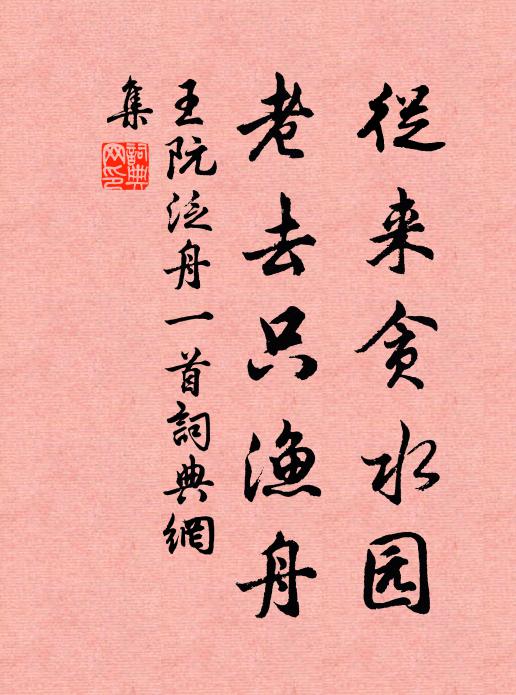 從来贪水园
老去只渔舟
王阮泛舟一首詞典網
集
詞典網